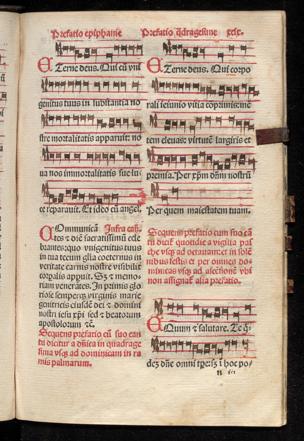 Prefatio epiphanie
Eterne deus. Qui cũ vni
genitus tuus in substantia no
stre mortalitatis apparuit: no
ua nos immortalitatis sue lu
ce reparauit. Et ideo cũ angel.
Cõmunicã Infra cañ.
tes et diẽ sacratissimũ cele
brantes: quo unigenitus tuus
in tua tecum glia coeternus in
veritate carnis nostre visibilit
corpalis apparuit. Sz et memo
riam venerates. In primis glo
riose semper virginis marie
genitricis eiusdẽ dei et domini
nostri iesu xpi sed et beatorum
apostolorum
Sequens prefatio cũ suo can
tu dicitur a dñica in quadrage
sima vsqz ad dominicam in ra
mis palmarum.
Prefatio q̃dragesime xlix.
Eterne deus. Qui corpo
rali ieiunio vitia coprimis: mẽ
tem eleuas: virtutẽ largiris et
premia. Per xpm dñm nostrũ
Per quem maiestatem tuam.
Sequens prefatio cum suo cã
tu dicit quotidie a vigilia pas
che vsqz ad octauam: et in sole
nibus festis et per omnes do
minicas vsqz ad ascẽsionẽ vbi
non assignat alia prefatio.
Equum et salutare. Te q̃
dez dñe omni tpe: sz ĩ hoc po